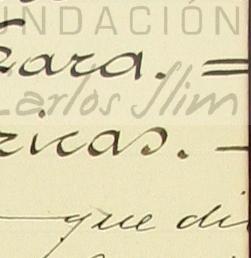 UNDACIÓN
zara. =
Carlos Slim
ricas. —
— que du